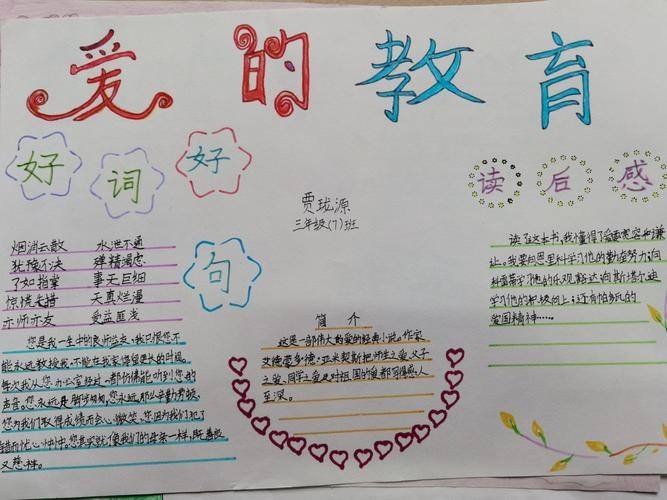 爱的教育
好词好句
读后感
贾珑源
三年级(7)班
烟消云散 水泄不通
犹豫不决 殚精竭虑
了如指掌 事无巨细
惊慌失措 天真烂漫
亦师亦友 受益匪浅
您是我一生中的良师益友,我只恨您不
能永远教授我,不能在我家停留更长的时间。
每次我从您办公室经过,都仿佛能听到您的
声音。您永远是那么
您为我们取得成绩而会心微笑,您因为我们犯了
错而忧心忡忡。您其实就像我们的母亲一样,既善良
又慈祥。
简介
这是一部伟大的爱的经典小说。作家
艾德蒙多·德·亚米契斯把师生之爱、父子
之爱、同学之爱及对祖国的爱都写得感人
至深。
读了这本书,我懂得了爱要宽容和谦
让。我要向恩里科学习他的勤奋努力;向
科蕾蒂学习他的乐观、豁达;向斯塔尔迪
学习他的积极向上;还有帕多瓦的
爱国精神……